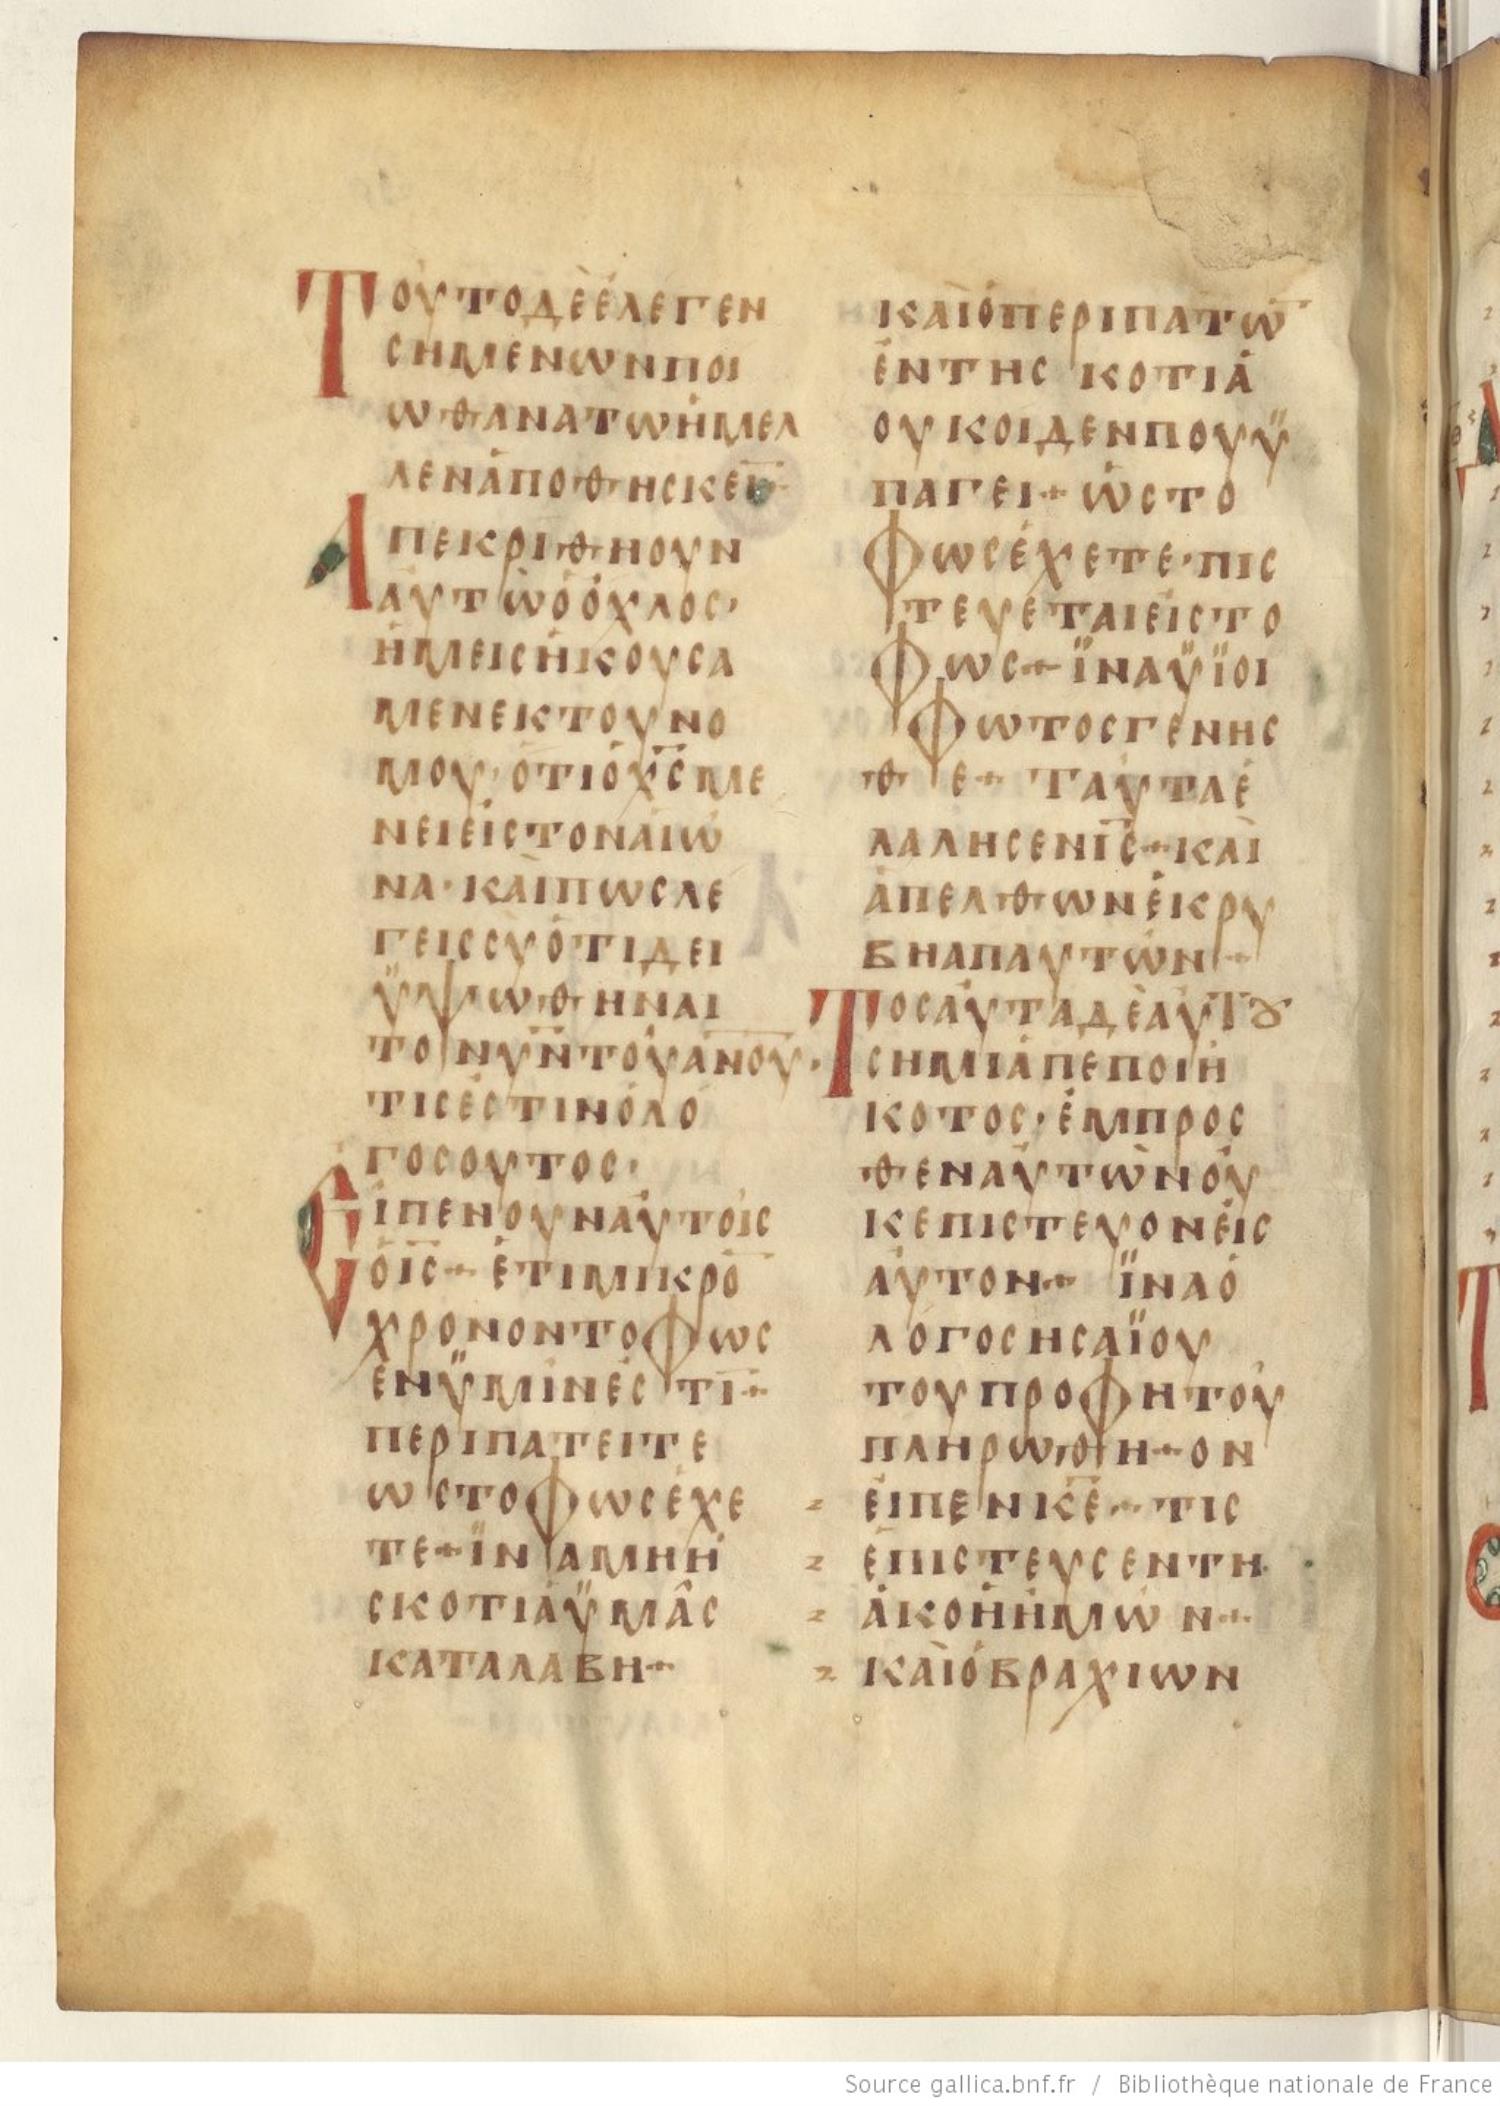 ΤΟΥΤΟΔὲἔΛΕΓΕΝ
ΣΗΜΕΝΩΝΠΟΙ
ΩΘΑΝΑΤΩΉΜΕΛ
ΛΕΝἈΠΟΘΗΣΚΕΙ̅
ΑΠΕΚΡΙΘΗΟΥΝ
ΑΥΤΩὁὄΧΛΟΣ·
ἡΜΕΙΣἠΚΟΥΣΑ
ΜΕΝΕΚΤΟΥΝΟ
ΜΟΥ·ὅΤΙὁΧ̅Σ̅ΜΕ
ΝΕΙΕἰΣΤΟΝΑἰΩ
ΝΑ·ΚΑὶΠΩΣΛΕ
ΓΕΙΣΣΥὅΤΙΔΕΙ
ΫΨΩΘΗΝΑΙ
ΤΟΝΥΝ̅ΤΟΥΑ̅Ν̅Ο̅Υ̅·
ΤΙΣἐΣΤΙΝὁΛΟ
ΓΟΣΟΥΤΟΣ·
ΕἸΠΕΝΟΥΝΑὐΤΟῖΣ
ὁΙ̅Σ̅+ἔΤΙΜΙΚΡΟ̅
ΧΡΟΝΟΝΤΟΦΩΣ
ἐΝΫΜΙΝἐΣΤΙ̅+
ΠΕΡΙΠΑΤΕΙΤΕ
ΩΣΤΟΦΩΣἔΧΕ
ΤΕ+ΪΝΑΜΗἡ
ΣΚΟΤΙἀΫΜᾶΣ
ΚΑΤΑΛΑΒΗ+
ΚΑὶὁΠΕΡΙΠΑΤΩ̅
ἐΝΤΗΣΚΟΤΙἀ
ΟΥΚΟΙΔΕΝΠΟΥΫ
ΠΑΓΕΙ+ὡΣΤΟ
ΦΩΣἔΧΕΤΕ·ΠΙΣ
ΤΕΥΕΤΑΙΕἰΣΤΟ
ΦΩΣ+ΪΝΑΫΪΟΙ
ΦΩΤΟΣΓΕΝΗΣ
ΘΕ+ΤΑΥΤΑἐ
ΛΑΛΗΣΕΝΙ̅Σ̅+ΚΑὶ
ἀΠΕΛΘΩΝἐΚΡΥ
ΒΗΑΠΑΥΤΩΝ+
ΤΟΣΑΥΤΑΔὲΑΥΤȢ
ΣΗΜΙἀΠΕΠΟΙΗ
ΚΟΤΟΣ·ἐΜΠΡΟΣ
ΘΕΝΑὐΤΩΝΟὐ
ΚΕΠΙΣΤΕΥΟΝΕἰΣ
ΑὐΤΟΝ+ΪΝΑὁ
ΛΟΓΟΣΗΣΑΪΟΥ
ΤΟΥΠΡΟΦΗΤΟΥ
ΠΛΗΡΩΘΗ+ΟΝ
ΕἶΠΕΝΚ̅Ε̅+ΤΙΣ
ἐΠΙΣΤΕΥΣΕΝΤΗ
ἀΚΟἡἡΜΩΝ+
ΚΑὶὁΒΡΑΧΙΩΝ
Source gallica.bnf.fr / Bibliothèque nationale de France